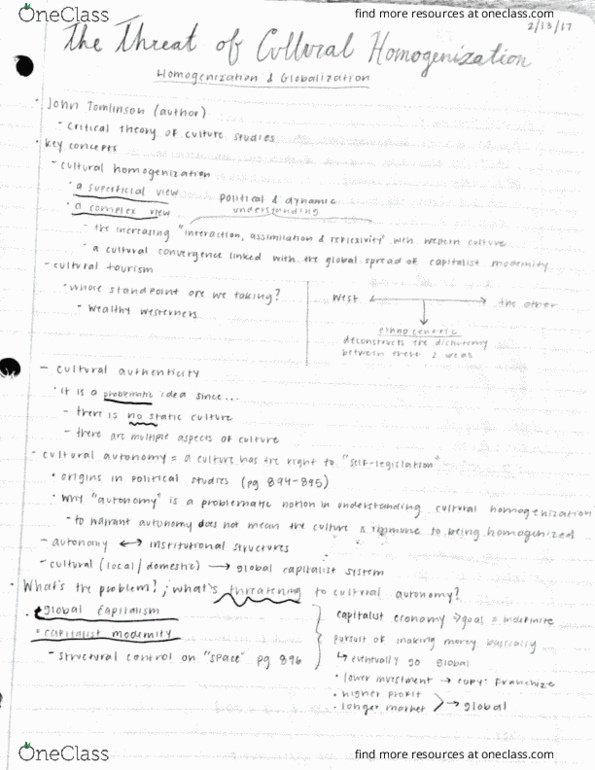 OneClass
find more resources at oneclass.com
2/13/17
The Threat of Cultural Homogenization
Homogenization & Globalization
• John Tomlinson (author)
- critical theory of culture studies
• key concepts
- cultural homogenization
• a superficial view
• a complex view
political & dynamic
understanding
- the increasing "interaction, assimilation & reflexivity" with western culture
- a cultural convergence linked with the global spread of capitalist modernity
- cultural tourism
• whose standpoint are we taking?
- wealthy westerners
West ↔ the other
ethnocentric
deconstructs the dichotomy
between these 2 ideas
- cultural authenticity
• it is a problematic idea since...
- there is no static culture
- there are multiple aspects of culture
- cultural autonomy = a culture has the right to "self-legislation"
• origins in political studies (pg 894-895)
• why "autonomy" is a problematic notion in understanding cultural homogenization
- to warrant autonomy does not mean the culture is immune to being homogenized
- autonomy ↔ institutional structures
- cultural (local/domestic) → global capitalist system
• What's the problem?; what's threatening to cultural autonomy?
• global capitalism
• capitalist modernity
- structural control on "space" pg 896
capitalist economy → goal = indefinite
pursuit of making money basically
↳ eventually go global
• lower investment → copy: franchize
• higher profit
• longer market → global
OneClass
find more resources at oneclass.com